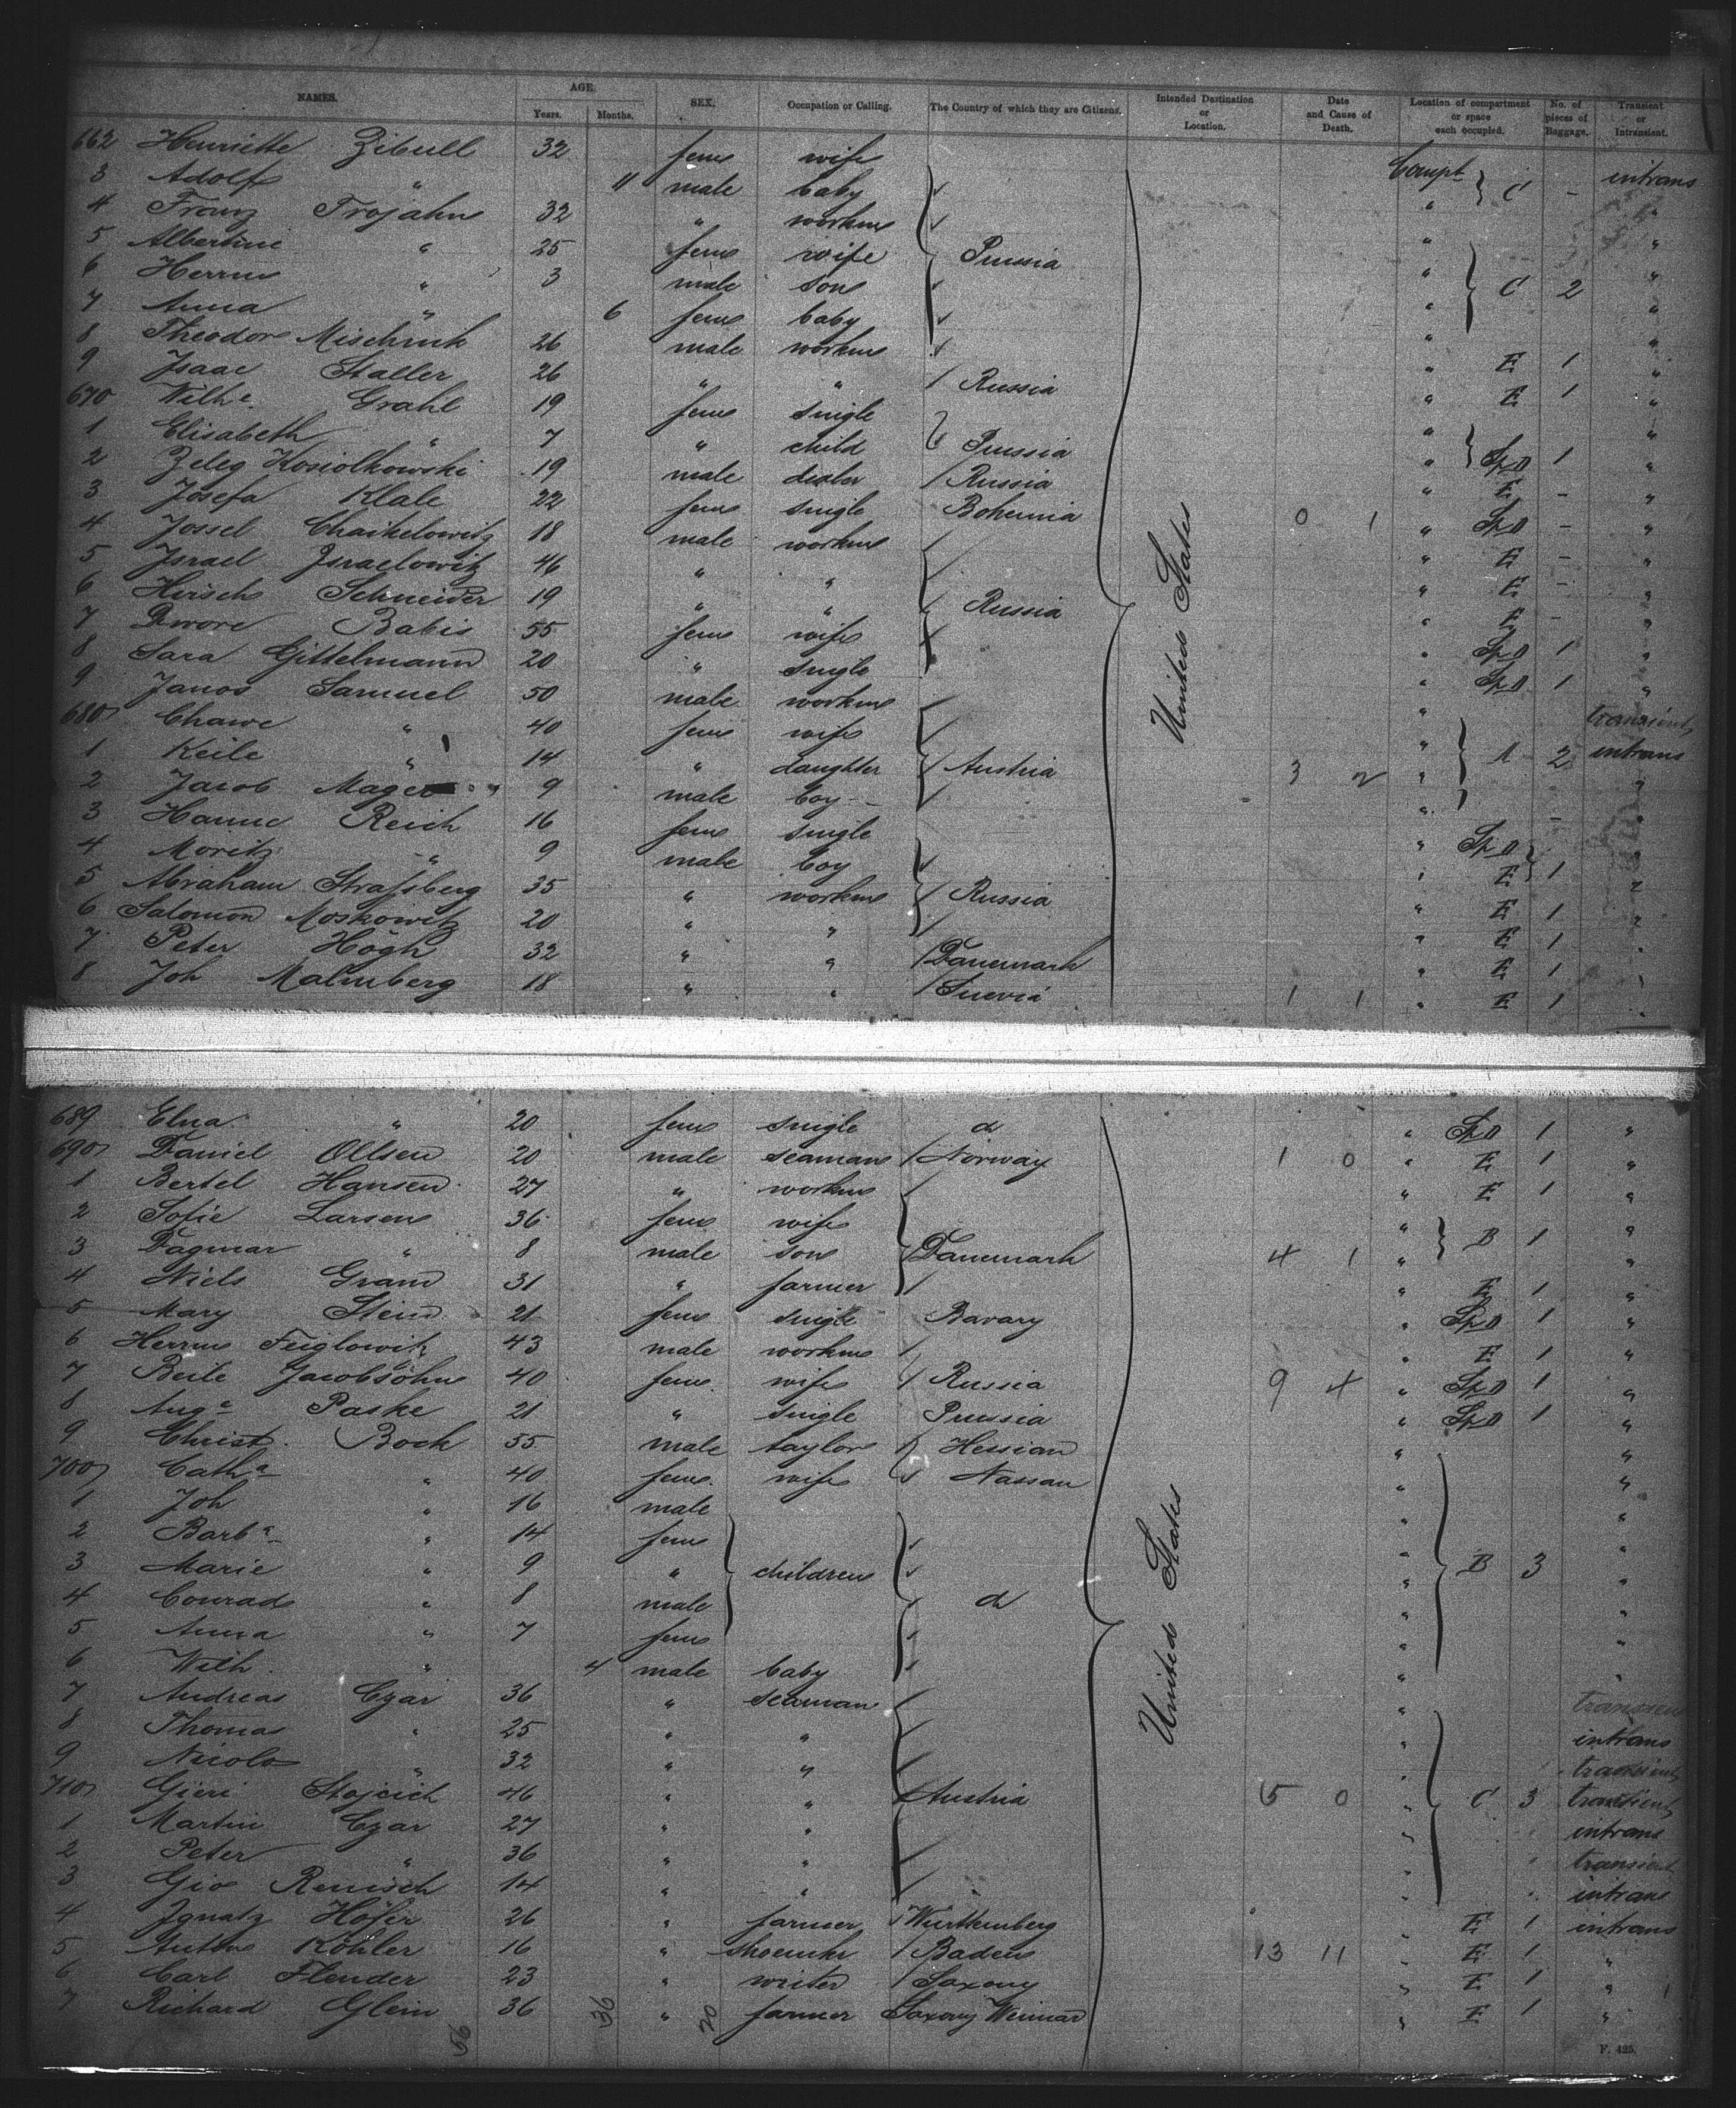 NAMES. AGE. Years. Months. SEX. Occupation or Calling. The Country of which they are Citizens. Intended Destination or Location. Date and Cause of Death. Location of compartment or space each occupied. No. of pieces of Baggage. Transient or Intransient.
662 Henriette Zibull 32 fem wife Compt C - intrans
3 Adolf " 11 male baby " "
4 Franz Trojahn 32 " workm " "
5 Albertine " 25 fem wife Prussia " "
6 Herrm " 3 male son " C 2 "
7 Anna " 6 fem baby " "
8 Theodor Mischnik 26 male workm " E 1 "
9 Isaac Staller 26 " " Russia " E 1 "
670 Wilhe. Grahl 19 fem single " "
1 Elisabeth " 7 " child Prussia " Sp D 1 "
2 Zeleg Kosiolkowski 19 male dealer Russia " E - "
3 Josefa Klale 22 fem single Bohemia 0 1 " Sp D - "
4 Jossel Chaikelowitz 18 male workm " E - "
5 Israel Israelowitz 46 " " " E - "
6 Hirsch Schneider 19 " " Russia " E - "
7 Dwore Babis 55 fem wife " Sp D 1 "
8 Sara Gittelmann 20 " single " Sp D 1 "
9 Janos Samuel 50 male workm " transient
680 Chawe " 40 fem wife " A 2 intrans
1 Keile " 14 " daughter Austria 3 2 " "
2 Jacob Mager 9 male boy " - "
3 Hanne Reich 16 fem single " Sp D
4 Moritz " 9 male boy E 1
5 Abraham Strassberg 35 " workm Russia " E 1
6 Salomon Moskowitz 20 " " " E 1
7 Peter Högh 32 " " Danemark " E 1
8 Joh Malmberg 18 " " Suevia 1 1 " E 1
United States
689 Elna " 20 fem single do " Sp D 1 "
690 Daniel Ollsen 20 male seaman Norway 1 0 " E 1 "
1 Bertel Hansen 27 " workm " E 1 "
2 Sofie Larsen 36 fem wife " B 1 "
3 Dagmar " 8 male son Danemark 4 1 " "
4 Niels Gram 31 " farmer " E 1 "
5 Mary Stein 21 fem single Bavary " Sp D 1 "
6 Herrm Feiglowitz 43 male workm " E 1 "
7 Beile Jacobsohn 40 fem wife Russia 9 4 " Sp D 1 "
8 Auge Paske 21 " single Prussia " Sp D 1 "
9 Christ. Bock 55 male taylor Hessian " "
700 Catha " 40 fem wife Nassau " "
1 Joh " 16 male " "
2 Barba " 14 fem " "
3 Marie " 9 " children " B 3 "
4 Conrad " 8 male do " "
5 Anna " 7 fem " "
6 Wilh. " 4 male baby " "
7 Andreas Czar 36 " seaman " transient
8 Thomas " 25 " " " intrans
9 Nicolo " 32 " " transient
710 Gieri Stojcich 46 " " Austria 5 0 " C 3 transient
1 Martin Czar 27 " " " intrans
2 Peter " 36 " " transient
3 Gio Renisch 14 " " intrans
4 Ignatz Höfer 26 " farmer Württemberg E 1 intrans
5 Anton Köhler 16 " shoemkr Baden 13 11 E 1 "
6 Carl Flender 23 " writer Saxony E 1 "
7 Richard Glein 36 " farmer Saxony Weimar E 1 "
United States
56 36 20
F. 425.